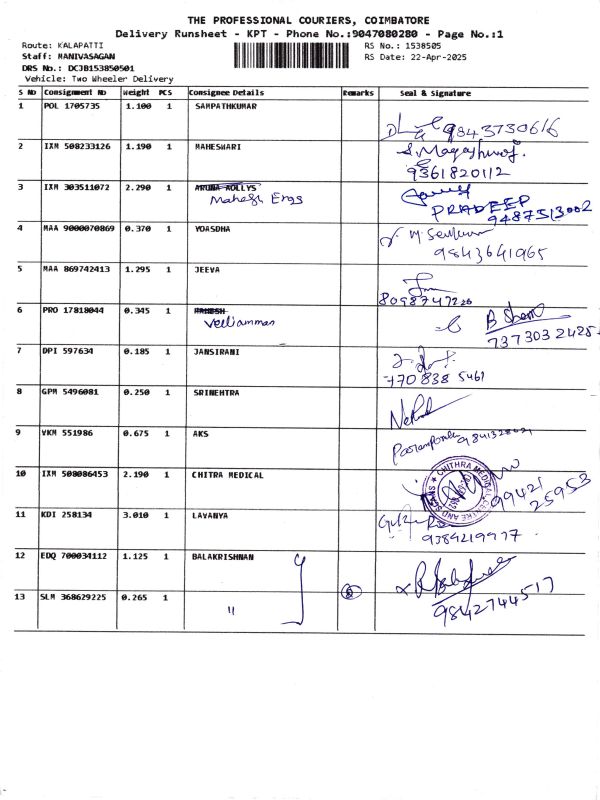 THE PROFESSIONAL COURIERS, COIMBATORE
Delivery Runsheet - KPT - Phone No.:9047080280 - Page No.:1
Route: KALAPATTI RS No.: 1538505
Staff: MANIVASAGAN RS Date: 22-Apr-2025
DRS No.: DCJB153850501
Vehicle: Two Wheeler Delivery
S No Consignment No Weight PCS Consignee Details Remarks Seal & Signature
1 POL 1705735 1.100 1 SAMPATHKUMAR
9843730616
2 IXM 508233126 1.190 1 MAHESWARI
9361820112
3 IXM 303511072 2.290 1 ARUNA ROLLYS
Mahesh Engs
PRADEEP
9487513002
4 MAA 9000070869 0.370 1 YOASDHA
9843641965
5 MAA 869742413 1.295 1 JEEVA
8098747220
6 PRO 17818044 0.345 1 MAHESH
Velliamman
B
737303 2425
7 DPI 597634 0.185 1 JANSIRANI
8 GPM 5496081 0.250 1 SRINEHTRA
9 VKM 551986 0.675 1 AKS
10 IXM 508086453 2.190 1 CHITRA MEDICAL
CHITHRA MEDICAL CENTRE AND SCANS
99421
25953
11 KDI 258134 3.010 1 LAVANYA
9384219977
12 EDQ 700034112 1.125 1 BALAKRISHNAN
13 SLM 368629225 0.265 1 "
9842744517